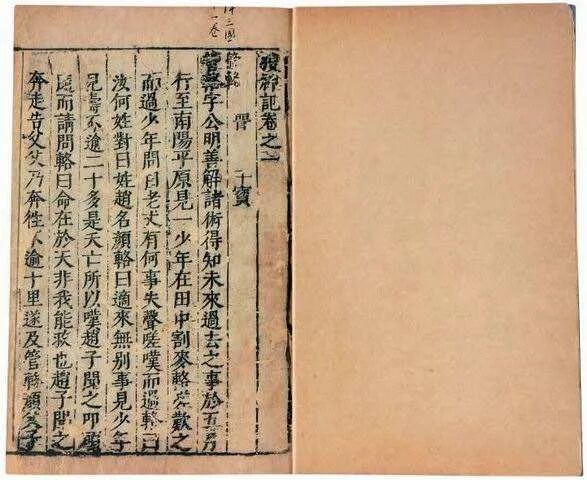 搜神記卷之一
晉 干寶
管輅字公明善解諸術得知未來過去之事於五月
行至南陽平原見一少年在田中割麥輅嗟歎之
而過少年問曰老丈有何事失聲嗟嘆而過輅曰
汝何姓對曰姓趙名顏輅曰適來無別事見少年
壽不逾二十多是夭亡所以嘆趙子聞之叩頭
而請問輅曰命在於天非我能救也趙子聞之
奔走告父父乃奔往不逾十里遂及管輅顏父子